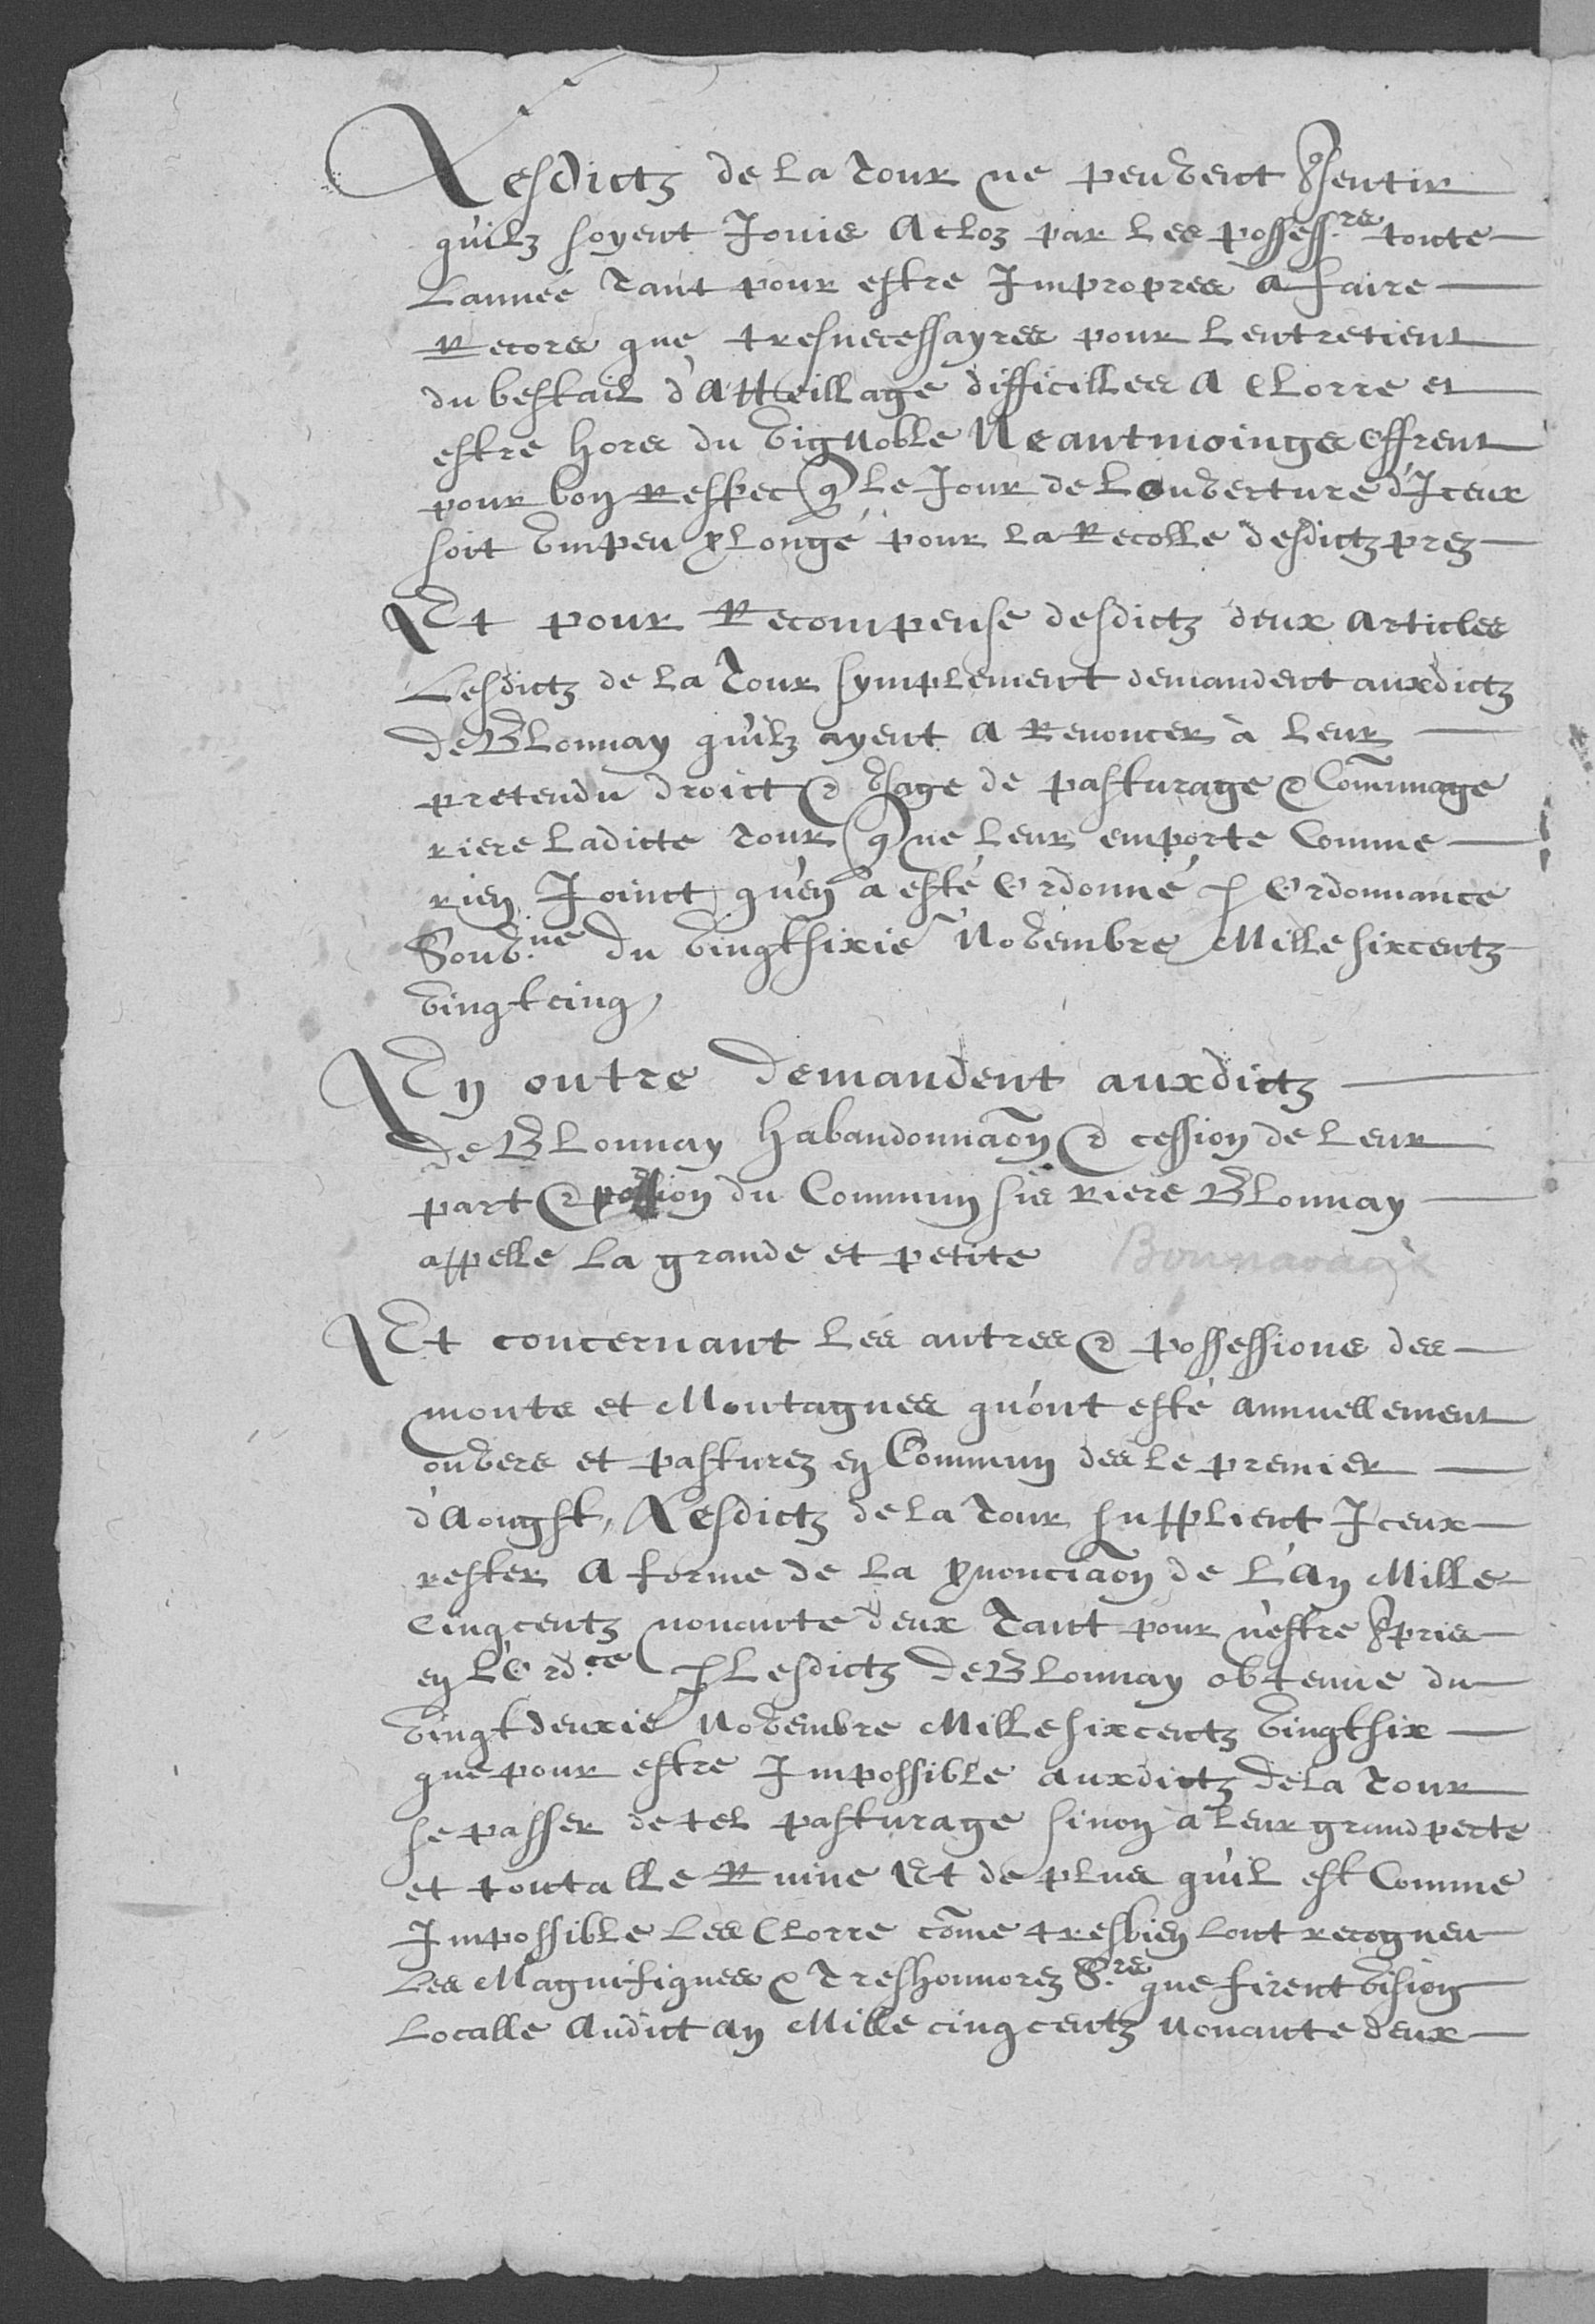 Lesdictz de la Tour ne peuvent ꝯsentir
quilz soyent Jouis a cloz par les possess.rs toute
Lannée Tant pour estre Impropres a faire
Recors que tresnecessayres pour Lentretient
du bestail d'Atteillage difficilles a Clorre et
estre hors du Vignoble Neantmoings offrent
pour bon Respec q Le Jour de Louverture d'Iceux
soit Vmpeu ꝓlongé pour la Recolle desdictz prez
Et pour Recompense desdictz deux articles
Lesdictz de La Tour symplement demandent auxdictz
de Blonnay quilz ayent a Renoncer à Leur
pretendu droict & Vsage de pasturage & Com̃unage
riere Ladicte Tour q ne Leur emporte Comme
rien Joinct qu'en a esté Ordonné ꝑ Ordonnance
Souv.ne du Vingtsixie Novembre Mille sixcentz
Vingtcinq,
En outre Demandent auxdictz
de Blonnay habandonnaõn & cession de Leur
part & du Commun sis riere Blonnay
appelle La grande et petite Bonnavaux
Et concernant Les autres & possessions des
monts et Montagnes qu'ont esté annuellement
ouvers et pasturez en Commun des Le premier
d'Aougst, Lesdictz de La Tour supplient Iceux
rester a forme de La ꝓnonciaõn de L'an Mille
Cinqcentz nonante deux Tant pour n'estre ꝯpris
en L'Ord.ce ꝑ Lesdictz de Blonnay obtenue du
Vingtdeuxie Novembre Mille sixcentz Vingtsix
que pour estre Impossible auxdictz de La Tour
se passer de tel pasturage sinon à Leur grand perte
et toutalle Ruine Et de plus qu'il est Comme
Impossible Les Clorre cõme tresbien Lont recogneu
Les Magnifiques & Treshonnorez S.rs que firent Vision
Localle Audict an Mille cinqcentz Nonante deux